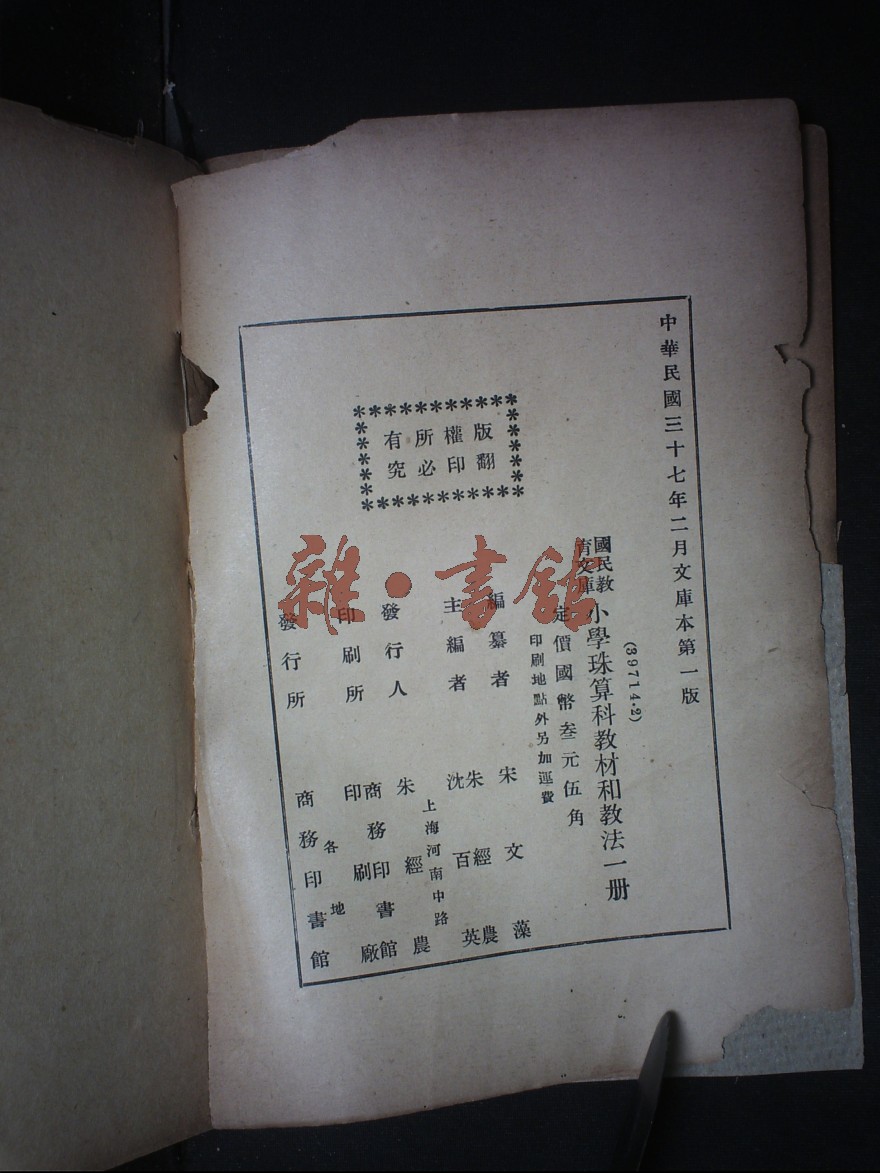 中華民國三十七年二月文庫本第一版
(39714·2)
國民教育文庫 小學珠算科教材和教法一册
定價國幣叁元伍角
印刷地點外另加運費
版權所有
翻印必究
編纂者 宋文藻
主編者 朱經農 沈百英
發行人 上海河南中路 朱經農
印刷所 商務印書館印刷廠
發行所 各地 商務印書館
雜·書館